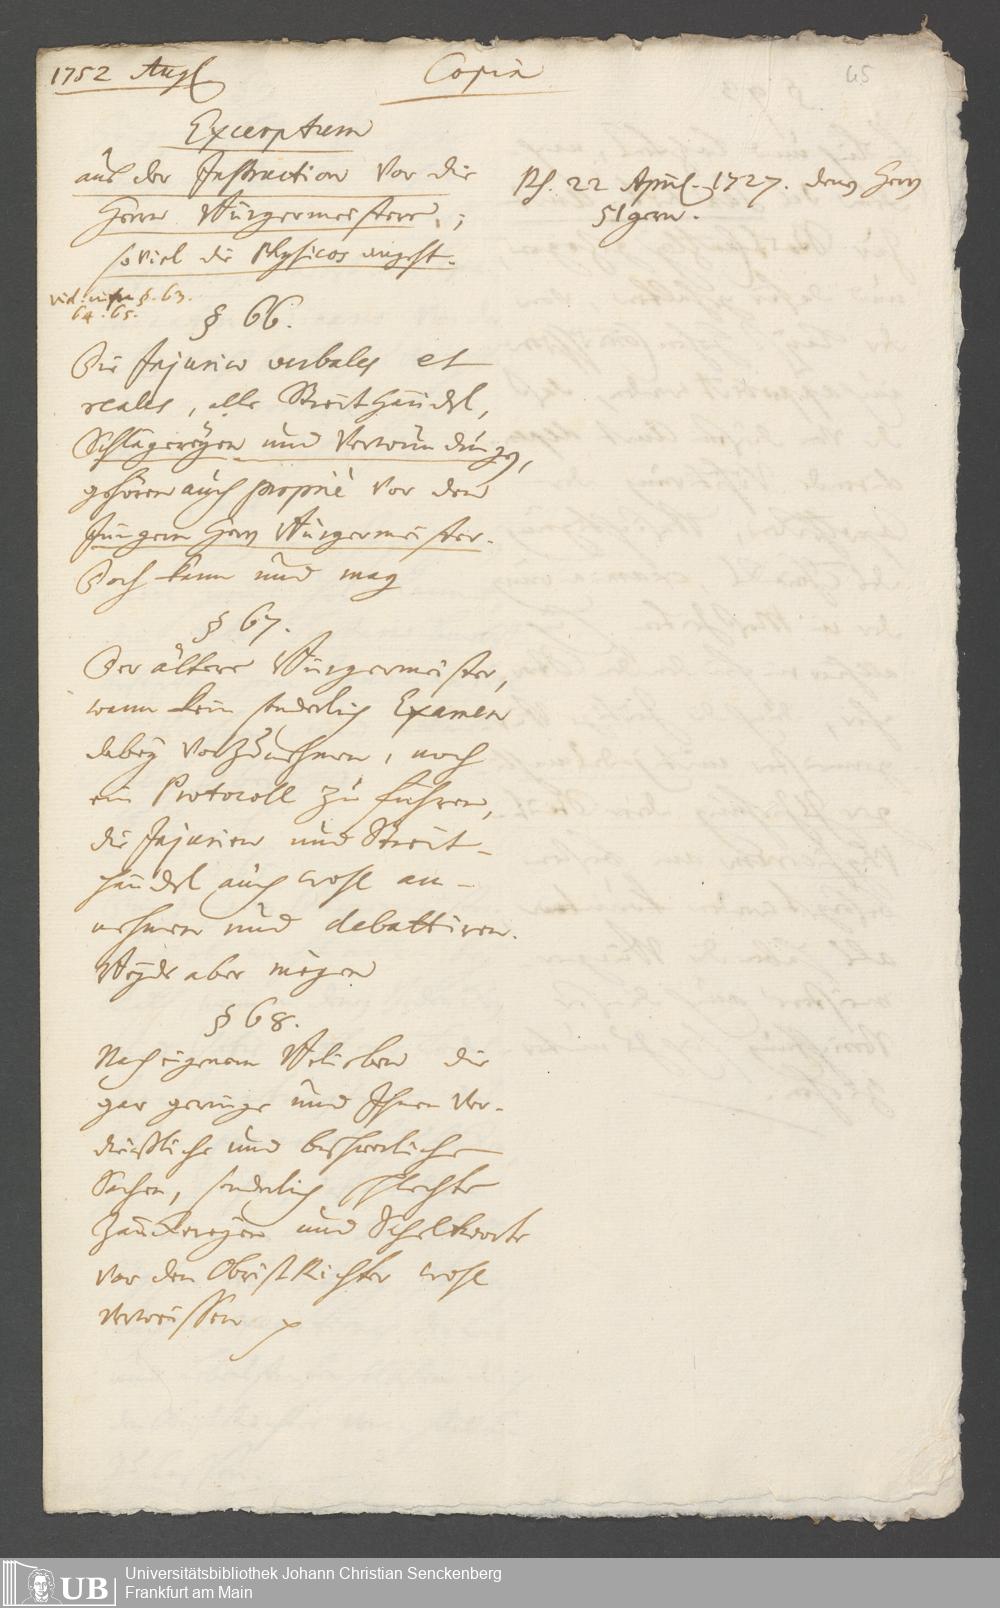 1752 Aug. Copia 65
Excerptum
aus der Instruction vor die
Herrn Bürgermeistere,
soviel die Physicos angeht.
Rs. 22 April. 1727. denen Herrn
51gern.
vid. infra §. 63.
64. 65.
§ 66.
Die Injurien verbales et
reales, alle Streithändel,
Schlägereyen und Verwundungen,
gehören auch proprie vor den
Jüngern Herrn Bürgermeister.
Doch kann und mag
§ 67.
Der ältere Bürgermeister,
wann kein sonderlich Examen
dabey vorzunehmen, noch
ein Protocoll zu führen,
die Injurien und Streit-
händel auch wohl an-
nehmen und debattiren.
Beyde aber mögen
§ 68.
Nach eigenem Belieben die
gar geringe und Ihnen ver-
drießliche und beschwerliche
Sachen, sonderlich schlechte
Zänckereyen und Scheltworte
vor den ObristRichter wohl
verweissen
Universitätsbibliothek Johann Christian Senckenberg
Frankfurt am Main
UB